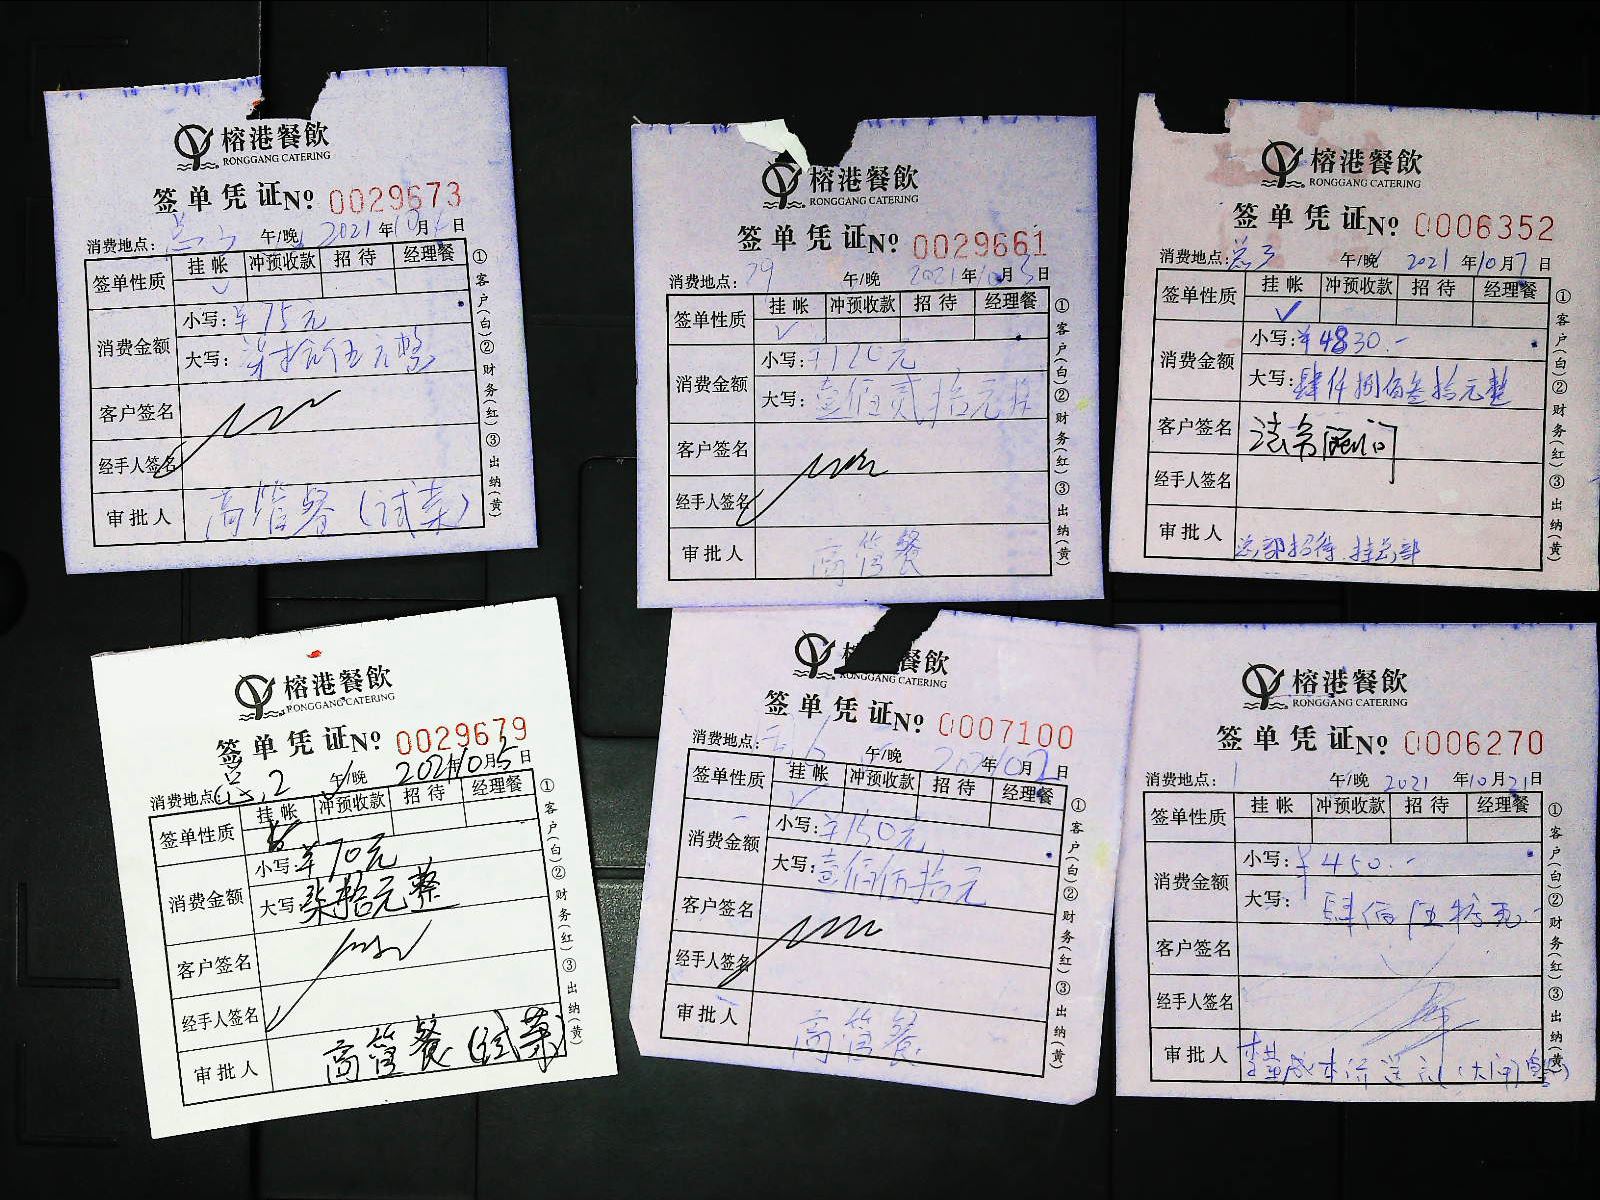 榕港餐飲
RONGGANG CATERING
签单凭证№ 0029673
消费地点: 午/晚 2021年10月4日
签单性质 挂帐 冲预收款 招待 经理餐
消费金额
小写:¥75元
大写:柒拾伍元整
客户签名
经手人签名
审批人 高管餐(试菜)
①客户(白)②财务(红)③出纳(黄)
榕港餐飲
RONGGANG CATERING
签单凭证№ 0029661
消费地点:79 午/晚 2021年10月3日
签单性质 挂帐 冲预收款 招待 经理餐
消费金额
小写:¥120元
大写:壹佰贰拾元
客户签名
经手人签名
审批人 高管餐
①客户(白)②财务(红)③出纳(黄)
榕港餐飲
RONGGANG CATERING
签单凭证№ 0006352
消费地点: 午/晚 2021年10月7日
签单性质 挂帐 冲预收款 招待 经理餐
消费金额
小写:¥4830.-
大写:肆仟捌佰叁拾元整
客户签名 法务顾问
经手人签名
审批人 总部招待 挂总部
①客户(白)②财务(红)③出纳(黄)
榕港餐飲
RONGGANG CATERING
签单凭证№ 0029679
消费地点:总.2 午/晚 2021年10月5日
签单性质 挂帐 冲预收款 招待 经理餐
消费金额
小写:¥70元
大写:柒拾元整
客户签名
经手人签名
审批人 高管餐(试菜)
①客户(白)②财务(红)③出纳(黄)
榕 餐飲
RONGGANG CATERING
签单凭证№ 0007100
消费地点: 午/晚 2021年10月2日
签单性质 挂帐 冲预收款 招待 经理餐
消费金额
小写:¥150元
大写:壹佰伍拾元
客户签名
经手人签名
审批人 高管餐
①客户(白)②财务(红)③出纳(黄)
榕港餐飲
RONGGANG CATERING
签单凭证№ 0006270
消费地点:1 午/晚 2021年10月21日
签单性质 挂帐 冲预收款 招待 经理餐
消费金额
小写:¥450.-
大写:肆佰伍拾元.-
客户签名
经手人签名
审批人 成本价送礼(大闸蟹)
①客户(白)②财务(红)③出纳(黄)